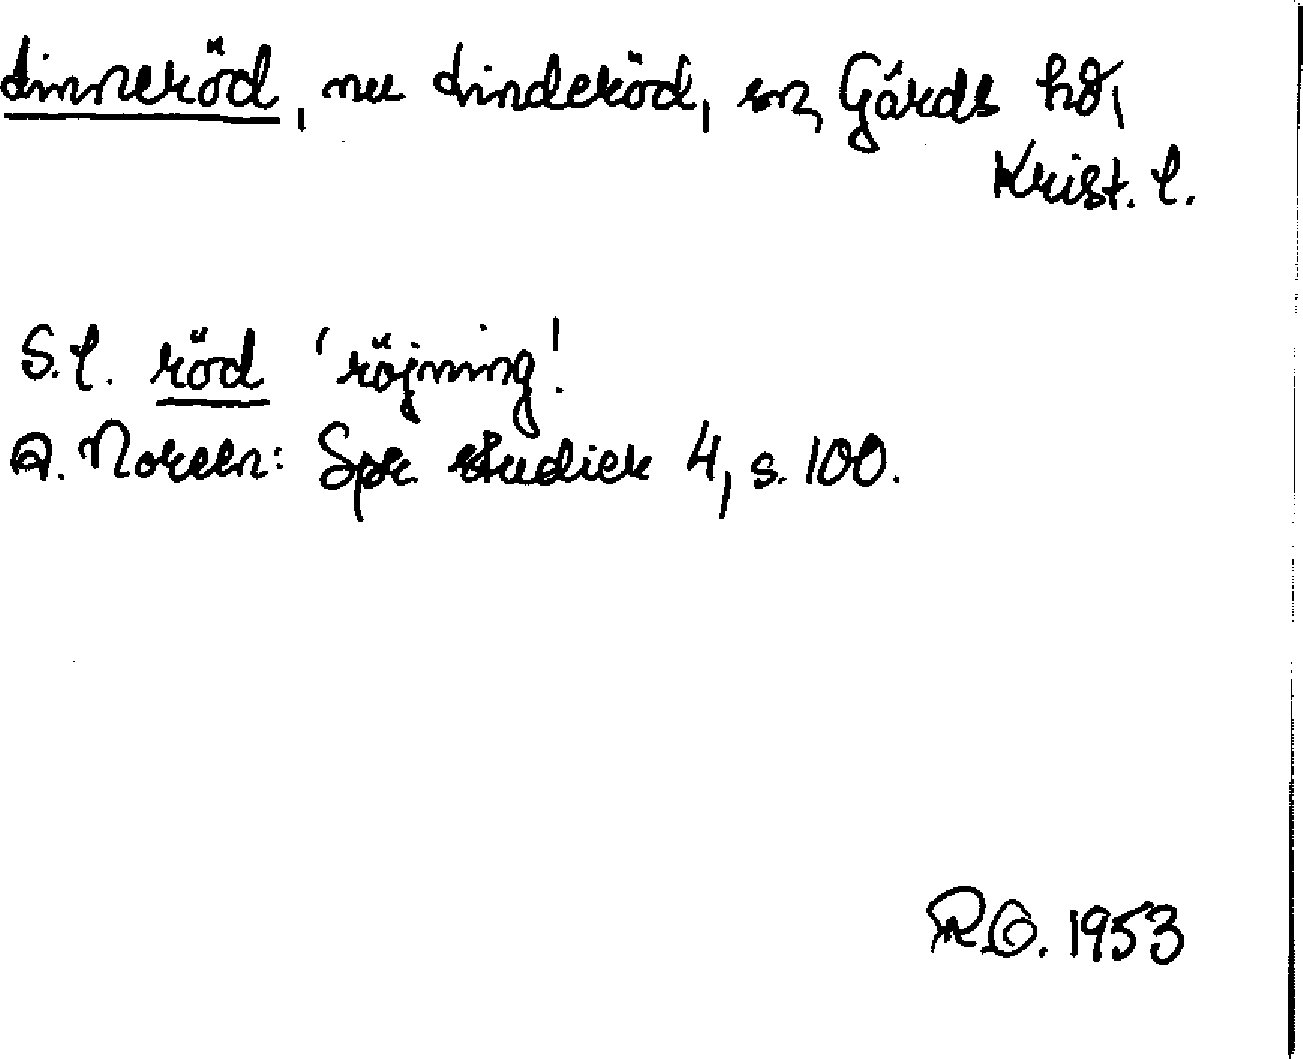 Linneröd, nu Linderöd, sn, Gärds hd,
Krist. l.
S.l. röd 'röjning'.
A. Noreen: Spr. studier 4, s. 100.
1953